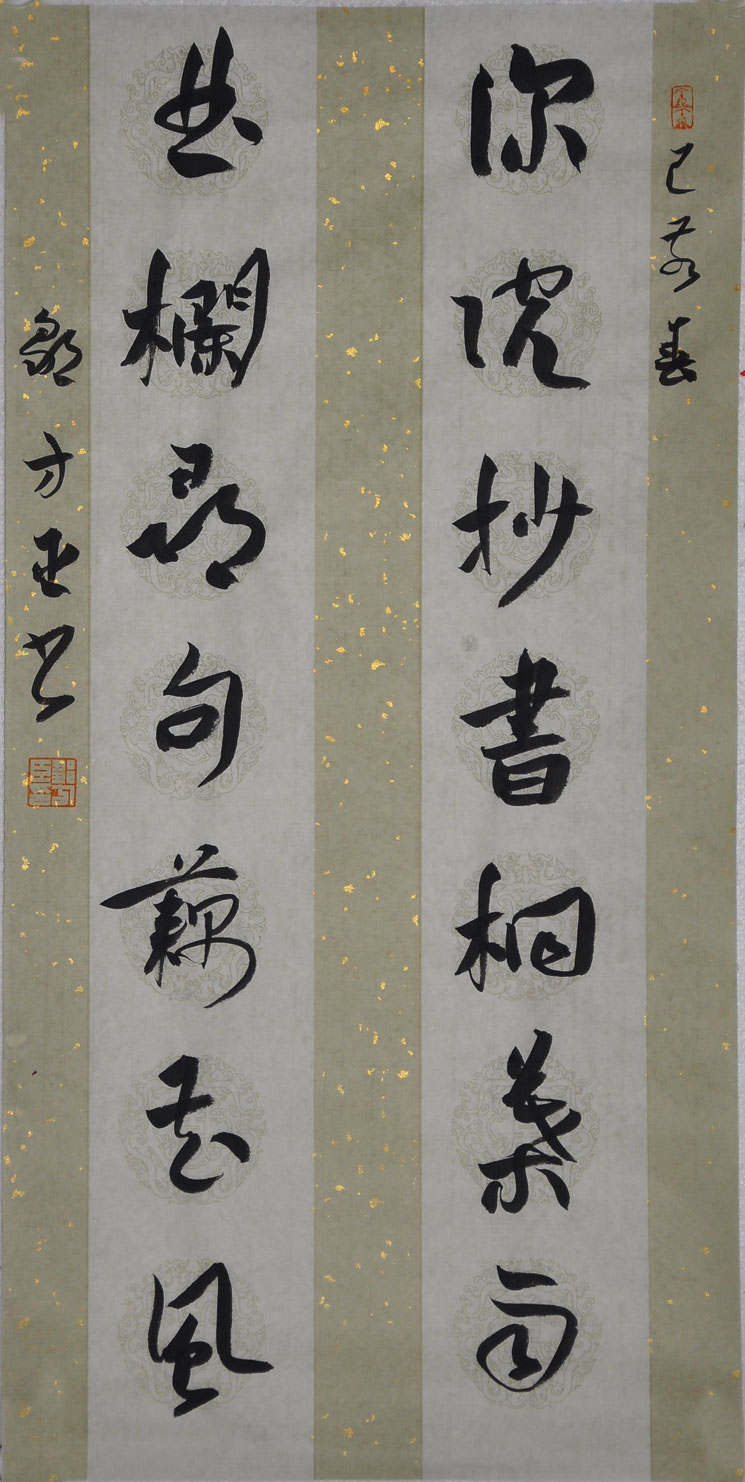 己亥春
深院抄書桐葉雨
曲欄尋句藕花風
鄒方臣書